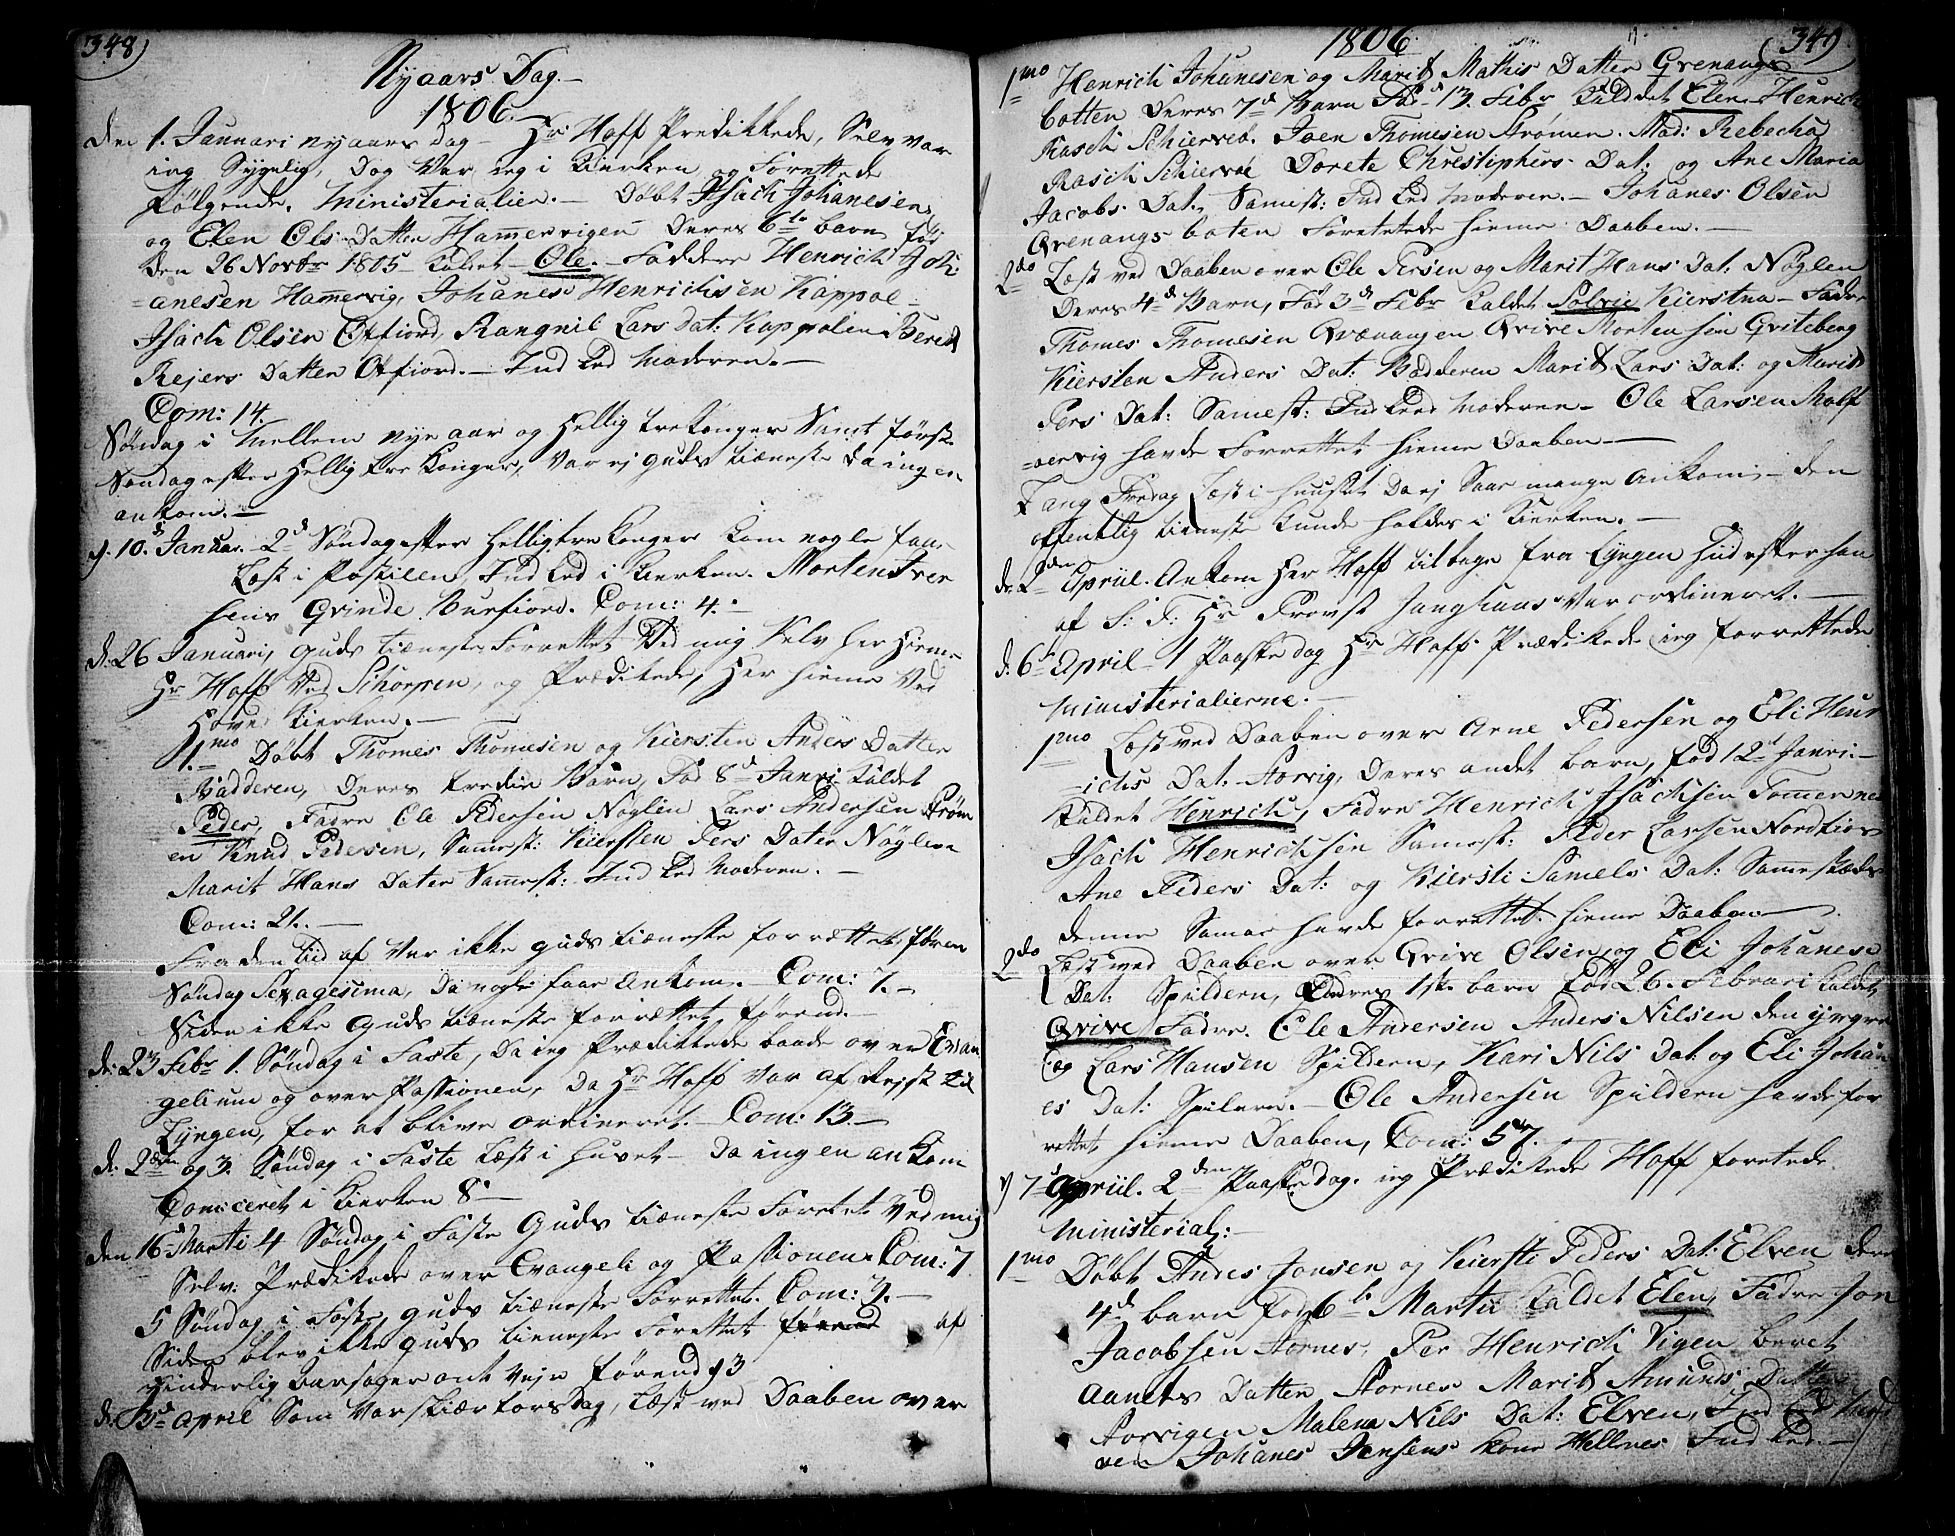 348)
Nyaars Dag.—
1806.—
den 1. Januari nyaars dag — Hr: Hoff Predikkede, Selv var
ieg Sygelig, Dog Var ieg i Kierken og Forettede
følgende Ministerialier.— Døbt Isach Johanesen
og Elen Ols Datter Hammervigen Deres 6te barn fød
den 26 Novbr 1805 Kaldet Ole.— Faddere Henrich Joh:
=anesen Hamervig, Johanes Henrichsen Kappøe=
Isach Olsen Oxfiord, Rangnil Lars Dat: Kappølen Beret
Rejers Datter Oxfiord.— Ind Led Moderen.—
Com: 14.
Søndag i Mellem nye aar og Hellig tre Konger Samt først
Søndag efter Hellig tre Konger, Var ej Guds tieneste da ingen
ankom.—
d. 10. Januar. 2d Søndag efter Helligtre Konger kom nogle faae
Læst i Postilen, Ind Led i Kierken. Morten Iver
sens Qvinde Burfiord. Com: 4.—
d: 26 Januari, Guds tieneste Forrettet Ved mig Selv her Hieme
Hr Hoff Ved Skorpen, og Prædikede, Her hieme Ved
Hoved Kierken.—
1mo Døbt Thomes Thomesen og Kiersten Anders Datter
Badderen, Deres tredie Barn, Fød 8d Janri Kaldet
Peder, Fadre Ole Pedersen Nøglen Lars Andersen Strøm
en Knud Pedersen, Samest: Kiersten Pers Dater Nøglen
Marit Hans Dater Sammest: Ind Led Moderen.—
Com: 21.—
Fra den tid af Var ikke Guds tieneste forrættet føren
Søndag Sexagesima, da nogle faae Ankom.— Com: 7.—
Siden ikke Guds tieneste forrættet førend.—
d: 23 Febr 1. Søndag i Faste, Da ieg Prædikkede baade over Evan
gelium og over Passionen, Da Hr Hoff Var af Rejst til
Lyngen, for at blive ordineret.— Com: 13.—
d. 2den og 3. Søndag i Faste Læst i huset— Da ingen ankom
Comuceret i Kierken 8—
den 16 Marti 4 Søndag i Faste Guds tieneste Forettet Ved mig
Selv: Prædikede over Evangeli og Passionen Com: 7
5 Søndag i Faste Guds tieneste Forrettet. Com: 7.—
Siden blev ikke Guds tieneste Forettet førend af
hinderlig aarsager ont Vejr førend d 3
d. 3d April Som Var skiær torsdag, Læst ved Daaben over
1806 (349)
1mo Henrich Johanesen og Marit Mathis Datter Qvenangs
botten Deres 7d Barn Fød 13. Febr Kaldet Elen Henrich
Rasch Schiervøe. Joen Thomesen Strømen. Mad: Rebecha
Rasch Schiervøe Dorete Christiphers Dat: og Ane Maria
Jacobs Dat: Samest: Ind Led Moderen.— Johanes Olsen
Qvenangs boten Foretede hieme Daaben.—
2do Læst ved Daaben over Ole Persen og Marit Hans Dat: Nøglen
Deres 4d Barn, Fød 3d Febr Kaldet Solvie Kierstna— Fadre
Thomes Thomesen Qvænangen Qvive Mortensen Qviteberg
Kiersten Anders Dat: Badderen Marit Lars Dat: og Marit
Pers Dat: Samest: Ind Led Moderen— Ole Larsen Rolf
=vervig havde Forrettet hieme Daaben.—
Lang Fredag Læst i huuset da ej Saa mange Ankom,— den
offentlig tieneste Kunde holdes i Kierken.—
d: 2den April. Ankom Her Hoff tilbage fra Lyngen Ind efter han
af S: T: Hr Provst Junghans Var ordineret.—
d: 6te April— 1 Paaske dag Hr Hoff Prædikede ieg forrettede
Ministerialierne.—
1mo Læst ved Daaben over Arne Pedersen og Eli Henr
=ichs Dat: Aarvig, Deres andet barn, fød 12d Janri.—
Kaldet Henrich, Fadre Henrich Isachsen Tømernes
Isach Henrichsen Samest: Peder Larsen Nordfior
Ane Peders Dat: og Kiersti Samels Dat: Sammestæds
denne Samae havde forrettet hieme Daaben—
2do Læst ved Daaben over Qvive Olsen og Eli Johanese
Dat: Spildern, Deres 1ste barn Fød 26. Februari Kaldet
Qvive Fadre. Ole Andersen Anders Nilsen den yngre
og Lars Hansen Spildern, Kari Nils Dat: og Eli Johan
es Dat: Spildern.— Ole Andersen Spildern havde for
rettet hieme Daaben, Com: 57.
d 7 April. 2den Paaske dag. ieg Prædikede Hoff foretede
Ministerial:—
1mo Døbt Andes Jonsen og Kiersti Peders Dat: Elven dere
4d barn Fød 6te Martii Kaldet Elen, Fadre Jon
Jacobsen Aornes, Per Henrich Vigen beret
Aanets Datter Stornes Marit Amunds Datter
Aarvigen Malena Nils Dat: Elven, Ind Led
ven Johanes Jensens kone Hellnes Ind Led.—